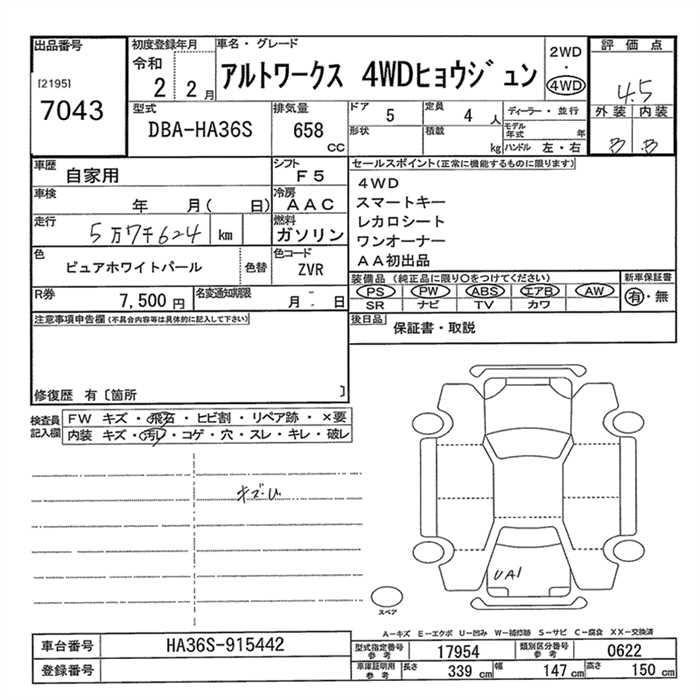 出品番号
[2195]
7043
初度登録年月
令和
2 2月
車名・グレード
アルトワークス 4WDヒョウジュン
2WD
・
4WD
評価点
4.5
外装 内装
B B
型式
DBA-HA36S
排気量
658
CC
ドア
5
定員
4 人
ディーラー・並行
形状
積載
kg
モデル年式 年
ハンドル 左・右
車歴
自家用
シフト
F5
車検
年 月( 日)
冷房
AAC
走行
5万7千624 km
燃料
ガソリン
色
ピュアホワイトパール
色替
色コード
ZVR
R券
7,500 円
名変通知期限
月 日
セールスポイント(正常に機能するものに限ります)
4WD
スマートキー
レカロシート
ワンオーナー
AA初出品
装備品 (純正品に限り○をつけてください)
新車保証書
PS PW ABS エアB AW
有・無
SR ナビ TV カワ
後日品
保証書・取説
注意事項申告欄(不具合内容等は具体的に記入して下さい)
修復歴 有〔箇所 〕
検査員記入欄
FW キズ・飛石・ヒビ割・リペア跡・×要
内装 キズ・汚レ・コゲ・穴・スレ・キレ・破レ
UA1
スペア
A-キズ E-エクボ U-凹み W-補修跡 S-サビ C-腐食 XX-交換済
車台番号
HA36S-915442
登録番号
型式指定番号 参考
17954
類別区分番号 参考
0622
車庫証明用 参考
長さ 339 cm 幅 147 cm 高さ 150 cm